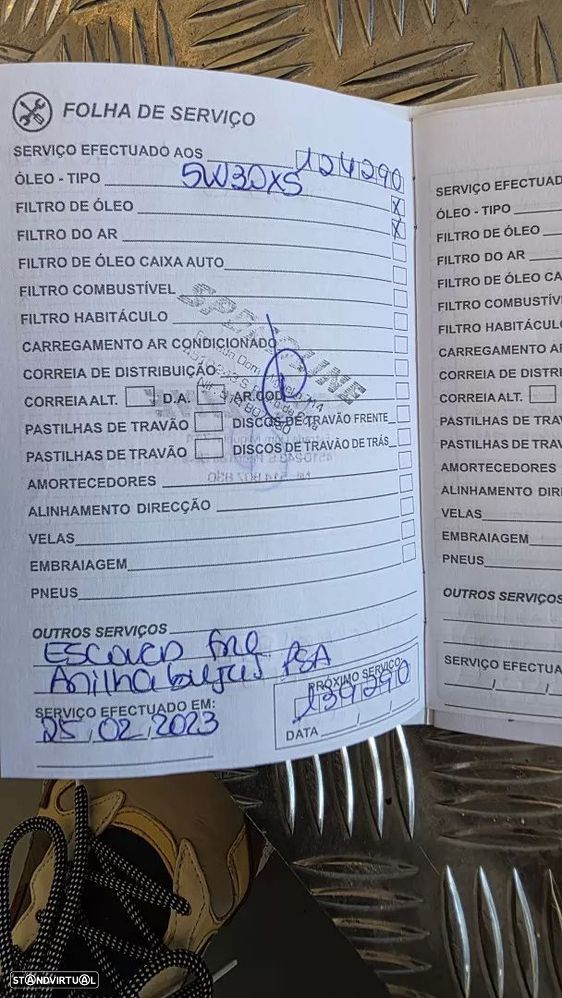 FOLHA DE SERVIÇO
SERVIÇO EFECTUADO AOS 124290
ÓLEO - TIPO 5W30X5
FILTRO DE ÓLEO X
FILTRO DO AR X
FILTRO DE ÓLEO CAIXA AUTO
FILTRO COMBUSTÍVEL
FILTRO HABITÁCULO
CARREGAMENTO AR CONDICIONADO
CORREIA DE DISTRIBUIÇÃO
CORREIA ALT. D.A. AR.COD.
PASTILHAS DE TRAVÃO DISCOS DE TRAVÃO FRENTE
PASTILHAS DE TRAVÃO DISCOS DE TRAVÃO DE TRÁS
AMORTECEDORES
ALINHAMENTO DIRECÇÃO
VELAS
EMBRAIAGEM
PNEUS
OUTROS SERVIÇOS
Anilha PSA
SERVIÇO EFECTUADO EM:
25,02,2023
PRÓXIMO SERVIÇO
139290
DATA
SERVIÇO EFECTUAD
ÓLEO - TIPO
FILTRO DE ÓLEO
FILTRO DO AR
FILTRO DE ÓLEO CA
FILTRO COMBUSTÍV
FILTRO HABITÁCUL
CARREGAMENTO A
CORREIA DE DISTRI
CORREIA ALT.
PASTILHAS DE TRAV
PASTILHAS DE TRAV
AMORTECEDORES
ALINHAMENTO DIR
VELAS
EMBRAIAGEM
PNEUS
OUTROS SERVIÇOS
SERVIÇO EFECTUA
STANDVIRTUAL